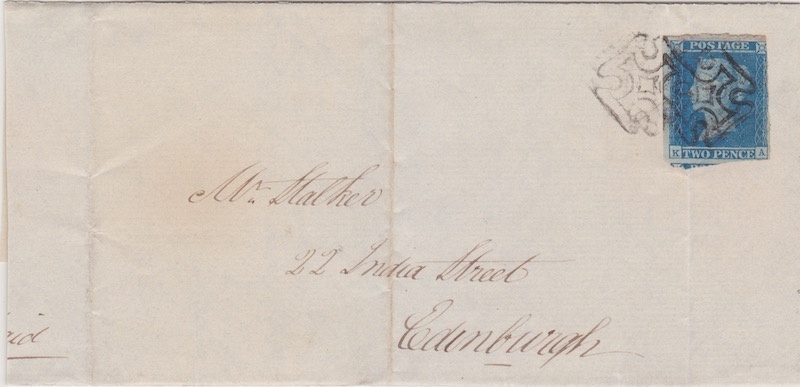 POSTAGE
K TWO PENCE A
Mr. Stalker
22 India Street
Edinburgh